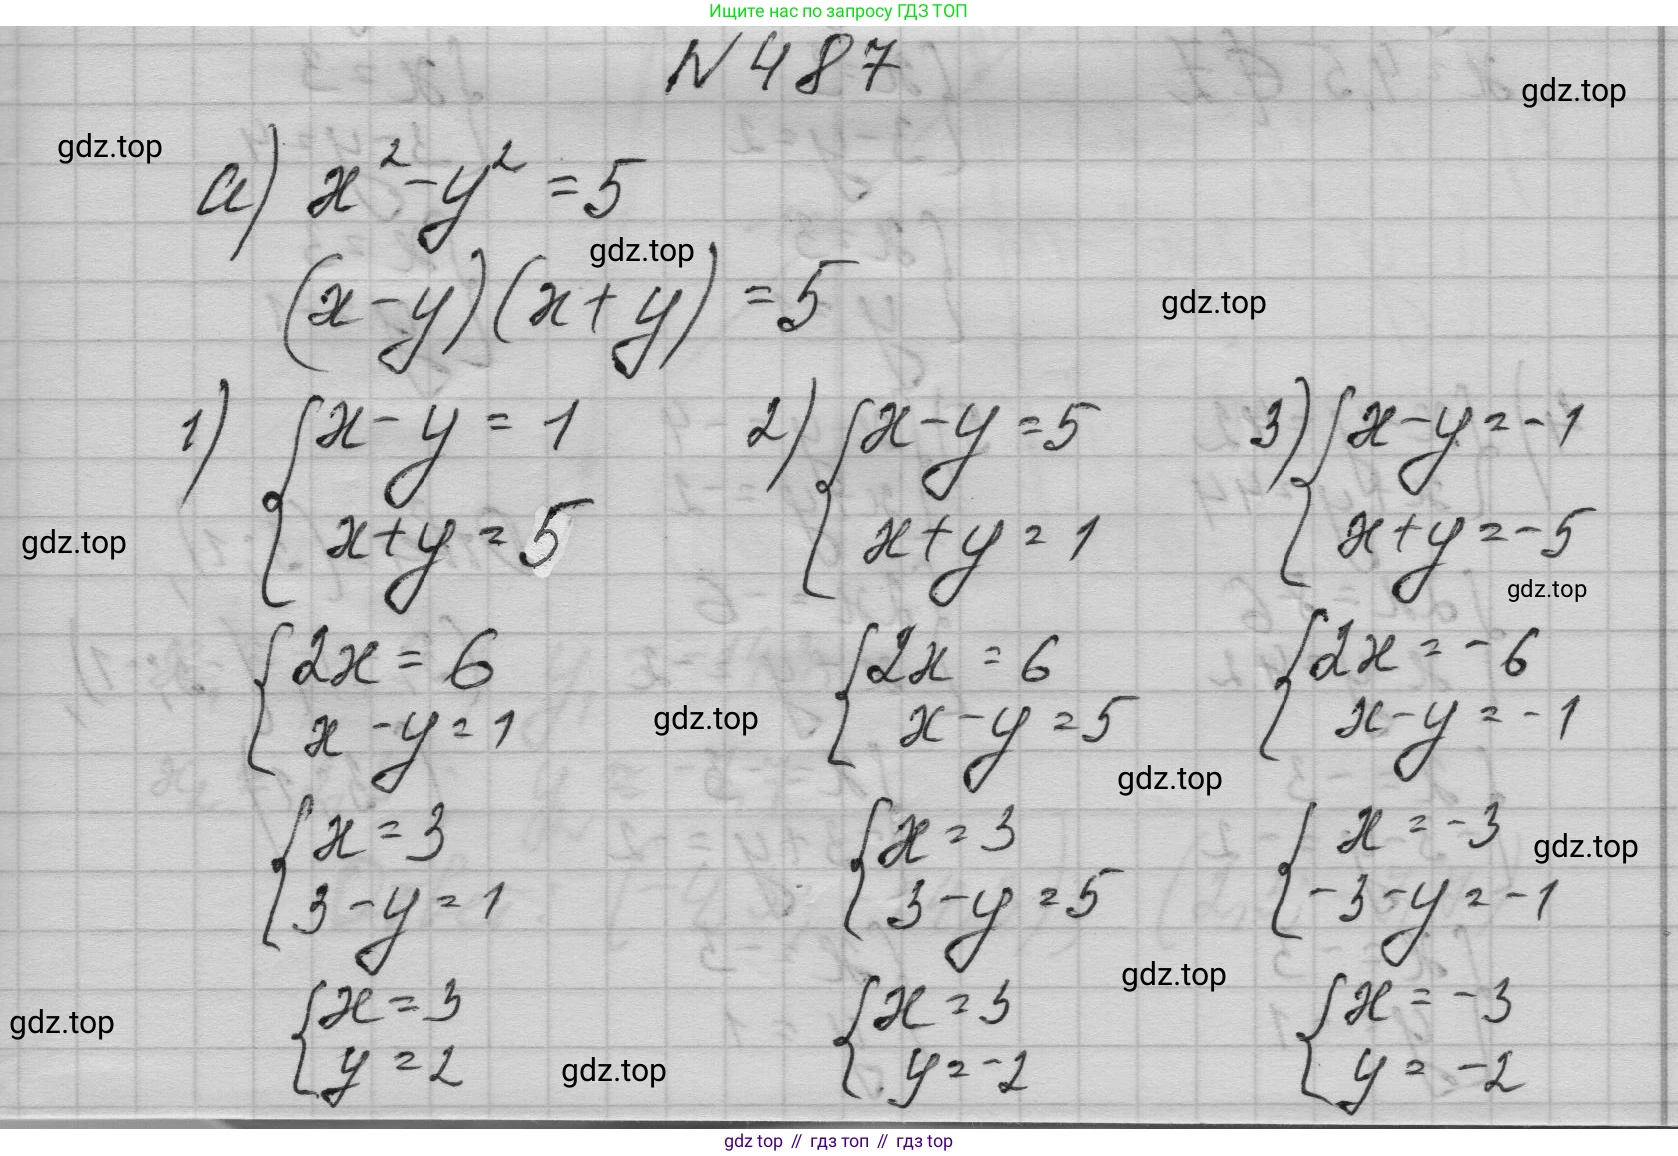 Ищите нас по запросу ГДЗ ТОП
N 487
gdz.top
gdz.top
а) x² - y² = 5
gdz.top
(x - y)(x + y) = 5
gdz.top
1) { x - y = 1
x + y = 5
2) { x - y = 5
x + y = 1
3) { x - y = -1
x + y = -5
gdz.top
gdz.top
{ 2x = 6
x - y = 1
{ 2x = 6
x - y = 5
{ 2x = -6
x - y = -1
gdz.top
gdz.top
{ x = 3
3 - y = 1
{ x = 3
3 - y = 5
{ x = -3
-3 - y = -1
gdz.top
gdz.top
{ x = 3
y = 2
{ x = 3
y = -2
{ x = -3
y = -2
gdz.top
gdz.top
gdz top // гдз топ // гдз top